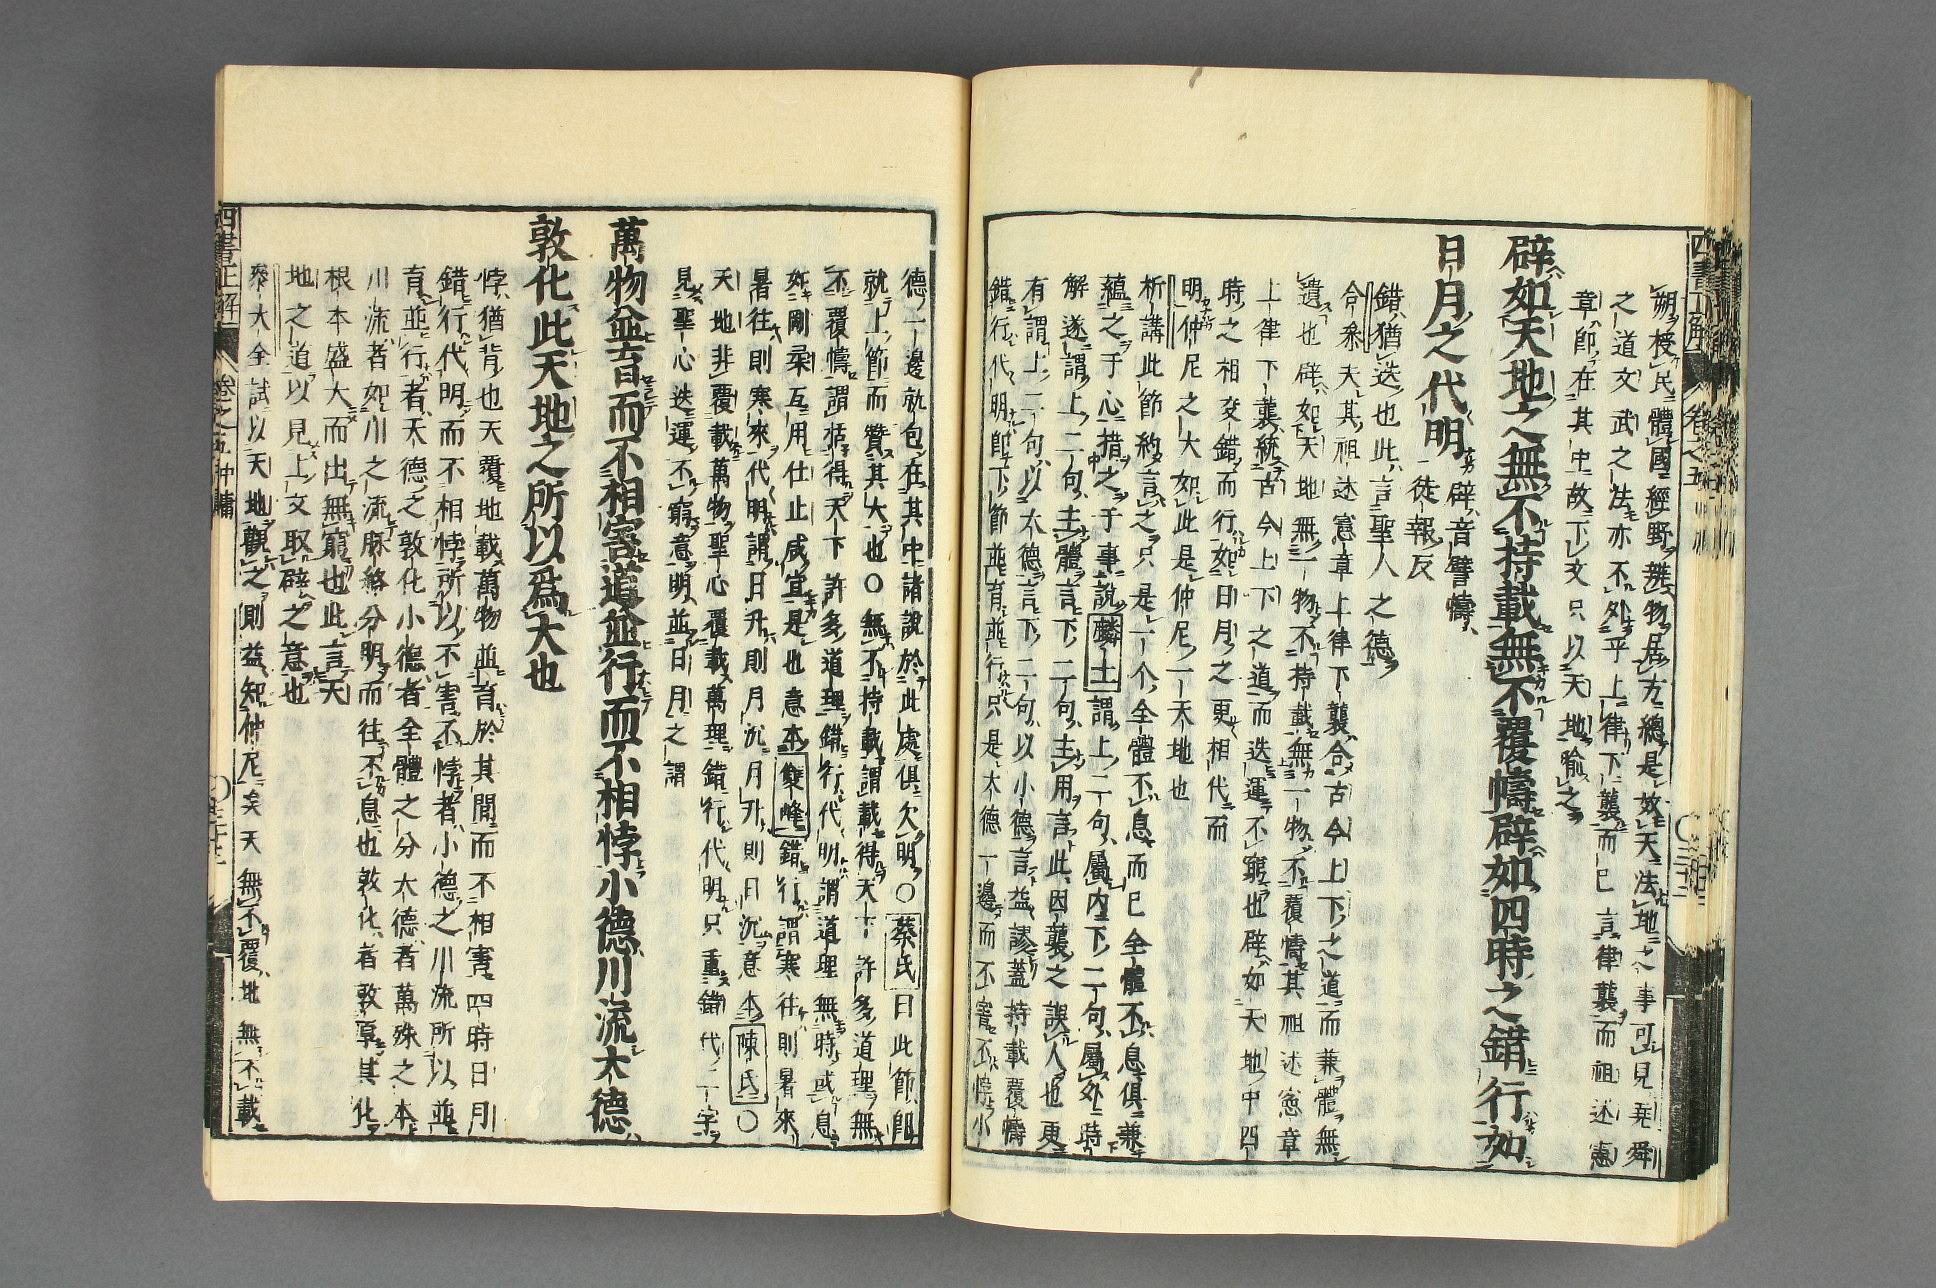 朔授民體國經野辨物居方總是如天法地之事可見堯舜
之道文武之法亦不外乎上律下襲而已言律襲而祖述憲
章即在其中故下文只以天地喻之
辟如天地之無不持載無不覆幬辟如四時之錯行如
日月之代明 辟音譬幬徒報反
錯猶迭也此言聖人之德
合參夫其祖述憲章上律下襲合古今上下之道而兼體無
遺也辟如天地無一物不持載無一物不覆幬其祖述憲章
上律下襲統古今上下之道而迭運不窮也辟如天地中四
時之相交錯而行如日月之更相代而
明仲尼之大如此是仲尼一天地也
析講此節約言之只是一个全體不息而已全體不息俱兼
蘊之于心措之于事說麟士謂上二句屬內下二句屬外時
解遂謂上二句主體言下二句主用言此因襲之誤人也更
有謂上二句以大德言下二句以小德言益謬蓋持載覆幬
錯行代明即下節並育並行只是大德一邊而不害不悖小
德一邊就包在其中諸說於此處俱欠明〇蔡氏曰此節即
就上節而贊其大也〇無不持載謂載得天下許多道理無
不覆幬謂括得天下許多道理錯行代明謂道理無時或息
如剛柔互用仕止咸宜是也意本雙峰錯行謂寒往則暑來
暑往則寒來代明謂日升則月沉月升則日沉意本陳氏〇
天地非覆載萬物聖心覆載萬理錯行代明只重錯代二字
見聖心迭運不窮意明並日月之謂
萬物並育而不相害道並行而不相悖小德川流大德
敦化此天地之所以爲大也
悖猶背也天覆地載萬物並育於其間而不相害四時日月
錯行代明而不相悖所以不害不悖者小德之川流所以並
育並行者大德之敦化小德者全體之分大德者萬殊之本
川流者如川之流脉絡分明而往不息也敦化者敦厚其化
根本盛大而出無窮也此言天
地之道以見上文取辟之意也
參大全試以天地觀之則益知仲尼矣天無不覆地無不載
四書正解 卷之五中庸